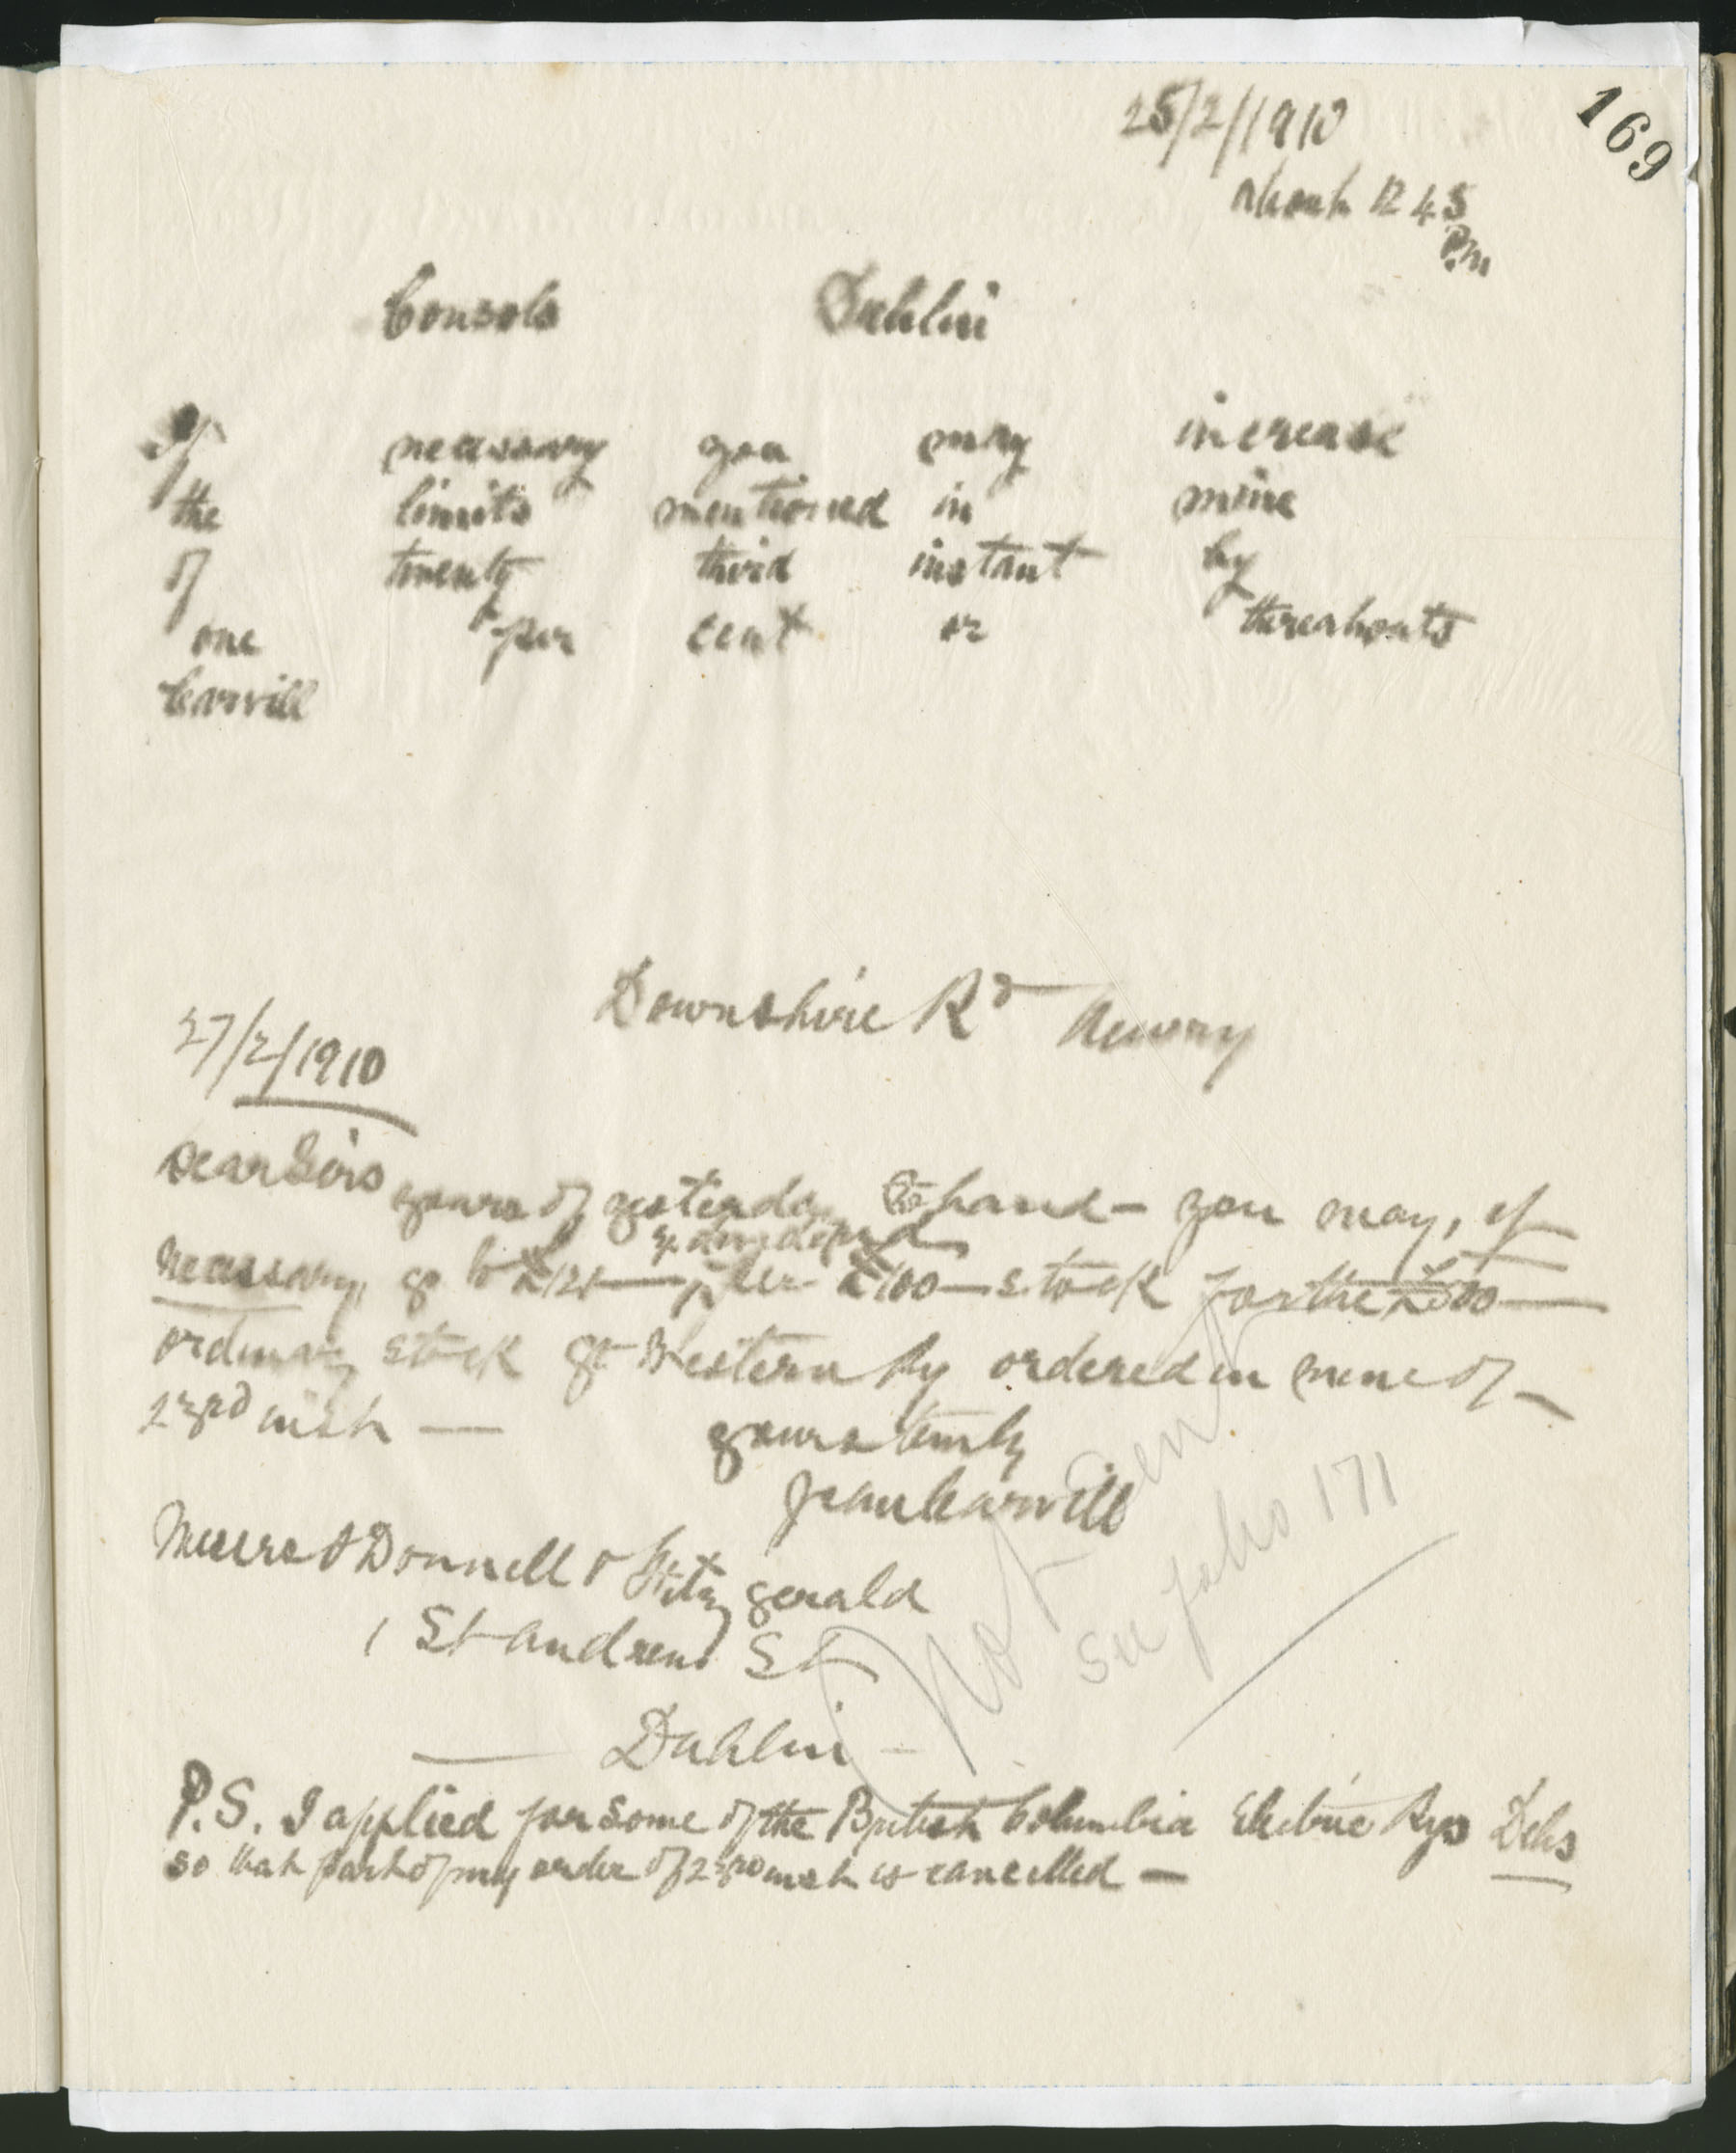 169
25/2/1910
About 12 45
P.m
Consols Dublin
If necessary you may increase
the limits mentioned in mine
of twenty third instant by
one per cent or thereabouts
Carvill
Downshire Rd Newry
27/2/1910
Dear Sirs yours of yesterday to hand - you may, if
necessary, go to £121 — per £100 — stock for the £500 —
ordinary stock Gt Western Ry ordered in mine of —
23rd inst —
yours truly
Carvill
Messrs O'Donnell & Fitzgerald
1 St Andrew St
Dublin —
Not sent
see folio 171
P.S. I applied for some of the British Columbia Electric Rys Debs
so that part of my order of 23rd inst is cancelled —